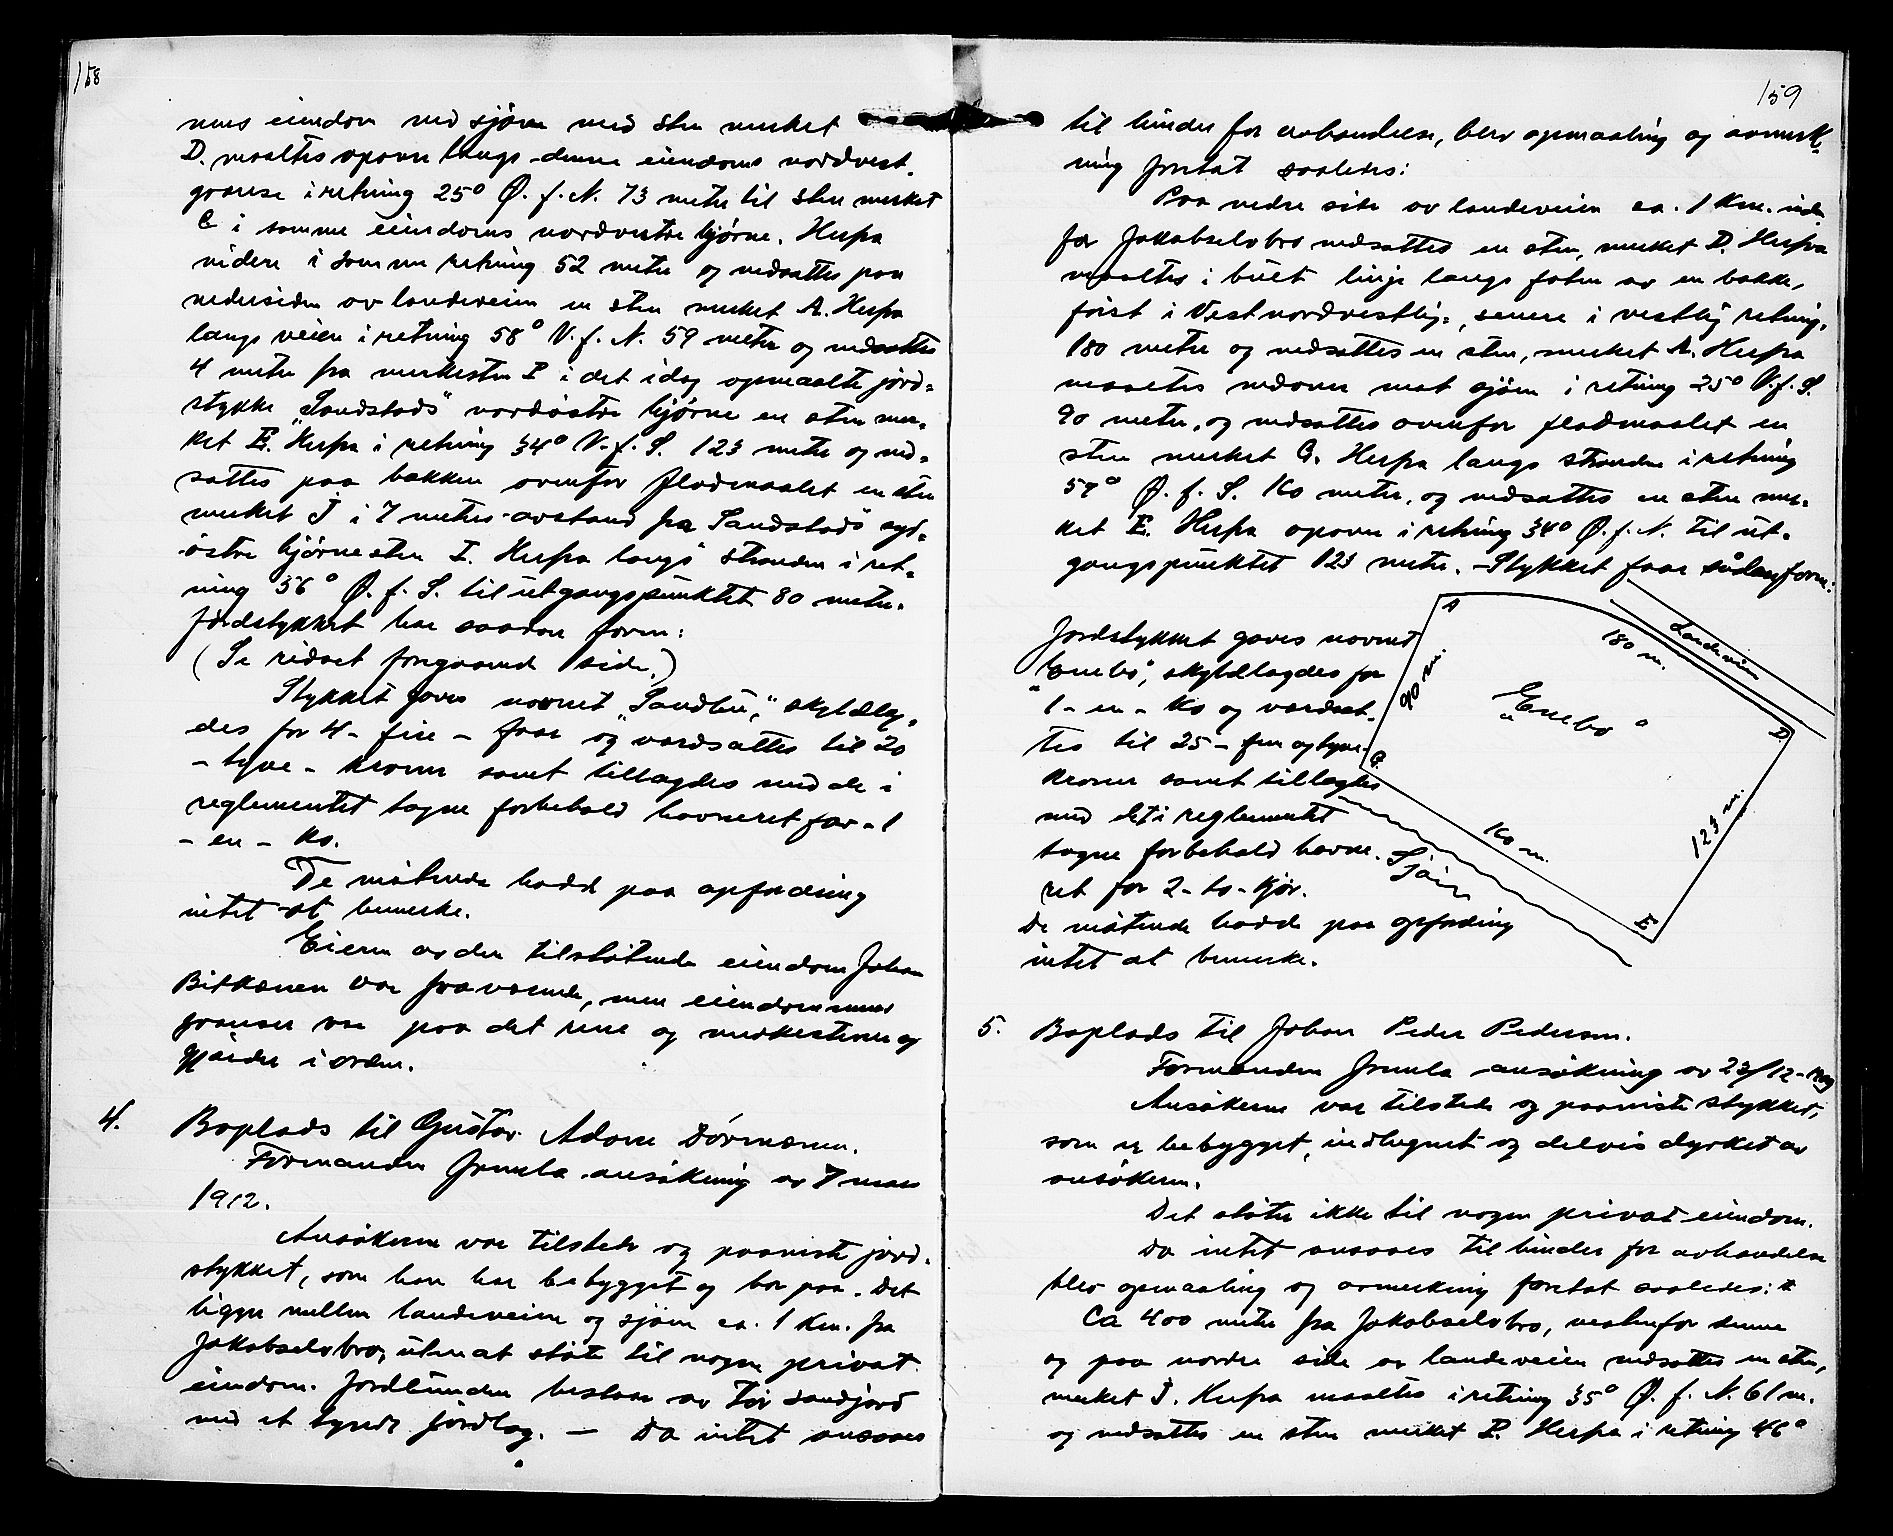 158
nens eiendom ved sjøen med sten merket
D. maaltes opover langs denne eiendoms nordvest-
grænse i retning 25° Ø. f. N. 73 meter til sten merket
C i samme eiendoms nordvestre hjørne. Herfra
videre i samme retning 52 meter og nedsattes paa
nedersiden av landeveien en sten merket A. Herfra
langs veien i retning 58° V. f. N. 59 meter og nedsattes
4 meter fra merkesten P i det idag opmaalte jord-
stykke "Sandstad's" nordøstre hjørne en sten mer-
ket E. Herfra i retning 34° V. f. S. 123 meter og ned-
sattes paa bakken ovenfor flodmaalet en sten
merket J i 7 meters avstand fra "Sandstads" syd-
østre hjørnesten I. Herfra langs stranden i ret-
ning 56° Ø. f. S. til utgangspunktet 80 meter.
Jordstykket har saadan form:
(Se risset foregaaende side.)
Stykket gaves navnet "Sandtun", skyldlag-
des for 4 - fire - faar og værdsattes til 20
- tyve - kroner samt tillagdes med de i
reglementet tagne forbehold havneret for - 1
- en - ko.
De møtende hadde paa opfordring
intet at bemerke.
Eieren av den tilstøtende eiendom Johan
Bitkanen var fraværende, men eiendommenes
grænser var paa det rene og merkestener og
gjærder i orden.
4. Boplads til Gustav Adam Dørmænen.
Formanden fremla ansøkning av 7 mars
1912.
Ansøkeren var tilstede og paaviste jord-
stykket, som han har bebygget og bor paa. Det
ligger mellem landeveien og sjøen ca. 1 Km. fra
Jakobselvbro, uten at støte til nogen privat
eiendom. Jordbunden bestaar av tør sandjord
med et tyndt jordlag. — Da intet ansaaes
159
til hinder for avhændelse, blev opmaaling og avmerk-
ning foretat saaledes:
Paa nedre side av landeveien ca. 1 Km. inden-
for Jakobselvbro nedsattes en sten, merket D. Herfra
maaltes i buet linje langs foten av en bakke,
først i Vestnordvestlig, senere i vestlig retning,
180 meter og nedsattes en sten, merket A. Herfra
maaltes nedover mot sjøen i retning 25° V. f. S.
90 meter, og nedsattes ovenfor flodmaalet en
sten merket G. Herfra langs stranden i retning
57° Ø. f. S. 160 meter, og nedsattes en sten mer-
ket E. Herfra opover i retning 34° Ø. f. N. til ut-
gangspunktet 123 meter. - Stykket faar sådan form:
Jordstykket gaves navnet
"Enebo", skyldlagdes for
1 - en - ko og værdsat-
tes til 25 - fem og tyve -
kroner samt tillagdes
med det i reglementet
tagne forbehold havne-
ret for 2 - to - kjør.
De møtende hadde paa opfordring
intet at bemerke.
A
Landeveien
180 m.
90 m.
"Enebo"
D.
G.
123 m.
160 m.
Sjøen
E
5. Boplads til Johan Peder Pedersen.
Formanden fremla ansøkning av 23/12-1909
Ansøkeren var tilstede og paaviste stykket,
som er bebygget, indhegnet og delvis dyrket av
ansøkeren.
Det støter ikke til nogen privat eiendom.
Da intet ansaaes til hinder for avhændelse
blev opmaaling og avmerkning foretat saaledes:
Ca 400 meter fra Jakobselvbro, vestenfor denne
og paa nordre side av landeveien nedsattes en sten,
merket J. Herfra maaltes i retning 35° Ø. f. N. 61 m.
og nedsattes en sten merket P. Herfra i retning 46°